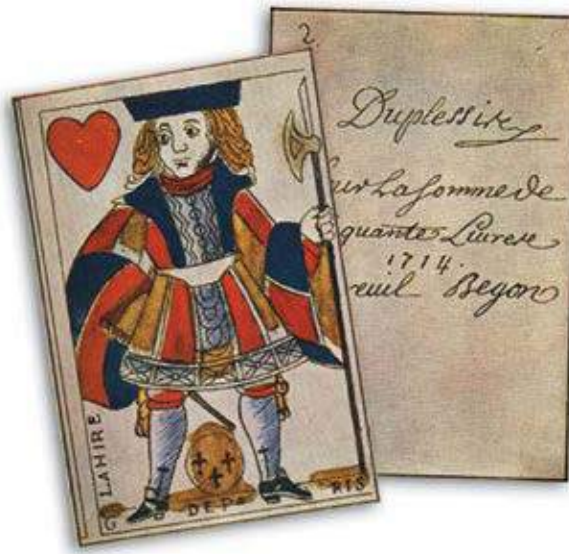 LAHIRE
G DE PA RIS
2.
Duplessis
ur La somme de
quantes Liures
1714.
reuil Begon